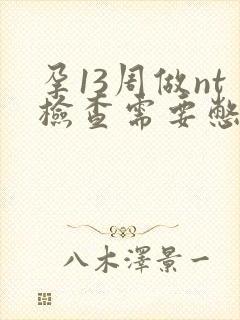 孕13周做nt
檢查需要憋
八木澤景一